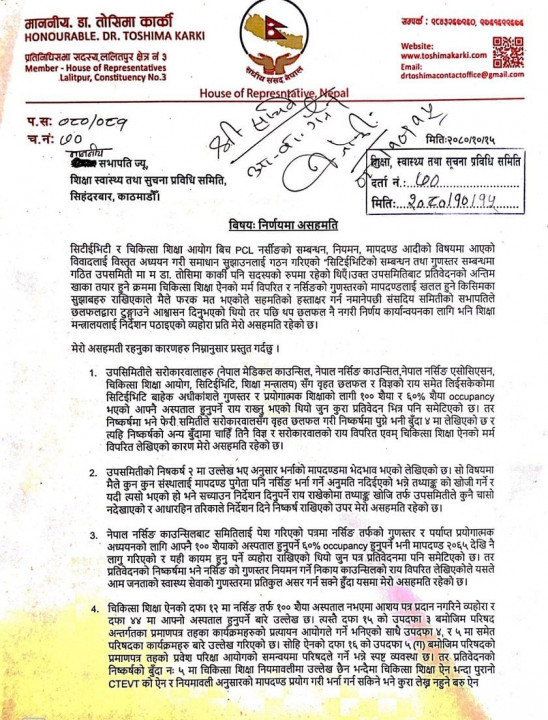 माननीय. डा. तोसिमा कार्की
HONOURABLE. DR. TOSHIMA KARKI
प्रतिनिधिसभा सदस्य,ललितपुर क्षेत्र नं ३
Member - House of Representatives
Lalitpur, Constituency No.3
संघीय संसद नेपाल
House of Represntative, Nepal
Website:
www.toshimakarki.com
Email:
drtoshimacontactoffice@gmail.com
प.स: ०८०/०८१
च.नं: ७०
मितिः२०८०/१०/१५
माननीय सभापति ज्यू,
शिक्षा स्वास्थ्य तथा सूचना प्रविधि समिति,
सिंहदरबार, काठमाडौँ।
शिक्षा, स्वास्थ्य तथा सुचना प्रविधि समिति
दर्ता नं.: ७०
मितिः २०८०/१०/१५
विषयः निर्णयमा असहमति
सिटीईभिटी र चिकित्सा शिक्षा आयोग बिच PCL नर्सीङको सम्बन्धन, नियमन, मापदण्ड आदीको विषयमा आएको
विवादलाई विस्तृत अध्ययन गरी समाधान सुझाउनलाई गठन गरिएको "सिटिईभिटिको सम्बन्धन तथा गुणस्तर सम्बन्धमा
गठित उपसमिती मा म डा. तोसिमा कार्की पनि सदस्यको रुपमा रहेको थिएँ।उक्त उपसमितिबाट प्रतिवेदनको अन्तिम
खाका तयार हुने क्रममा चिकित्सा शिक्षा ऐनको मर्म विपरित र नर्सिङको गुणस्तरको मापदण्डलाई खलल हुने किसिमका
सुझाबहरु राखिएकाले मैले फरक मत भएकोले सहमतिको हस्ताक्षर गर्न नमानेपछी संसदिय समितीको सभापतिले
छलफलद्वारा टुङ्ग्याउने आश्वासन दिनुभएको थियो तर पछि थप छलफल नै नगरी निर्णय कार्यान्वयनका लागि भनि शिक्षा
मन्त्रालयलाई निर्देशन पठाइएको व्यहोरा प्रति मेरो असहमति रहेको छ।
मेरो असहमती रहनुका कारणहरु निम्नानुसार प्रस्तुत गर्दछु ।
1. उपसमितीले सरोकारवालाहरु (नेपाल मेडिकल काउन्सिल, नेपाल नर्सिङ काउन्सिल,नेपाल नर्सिङ एसोसिएसन,
चिकित्सा शिक्षा आयोग, सिटिईभिटि, शिक्षा मन्त्रालय) सँग वृहत छलफल र विज्ञको राय समेत लिईसकेकोमा
सिटिईभिटि बाहेक अधीकांशले गुणस्तर र प्रयोगात्मक शिक्षाको लागी १०० शैया र ६०% शैया occupancy
भएको आफ्नै अस्पताल हुनुपर्ने राय राख्नु भएको थियो जुन कुरा प्रतिवेदन भित्र पनि समेटिएको छ। तर
निष्कर्षमा भने फेरी समितीले सरोकारवालसँग वृहत छलफल गरी निष्कर्षमा पुग्ने भनी बुँदा ४ मा लेखीएको छ र
त्यहि निष्कर्षको अन्य बुँदामा चाहिँ तिनै विज्ञ र सरोकारवालको राय विपरित एवम् चिकित्सा शिक्षा ऐनको मर्म
विपरित लेखीएको कारण मेरो असहमति रहेको छ।
2. उपसमितीको निष्कर्ष २ मा उल्लेख भए अनुसार भर्नाको मापदण्डमा भेदभाव भएको लेखिएको छ। सो विषयमा
मैले कुन कुन संस्थालाई मापदण्ड पुगेता पनि नर्सिङ भर्ना गर्ने अनुमति नदिईएको भन्ने तथ्याङ्क को खोजी गर्न र
यदी त्यसो भएको हो भने सच्याउन निर्देशन दिनुपर्ने राय राखेकोमा तथ्याङ्क खोजि तर्फ उपसमितीले कुनै चासो
नदेखाएको र आधारहिन तरिकाले निर्देशन दिने निष्कर्ष राखिएको उपर मेरो असहमति रहेको छ।
3. नेपाल नर्सिङ काउन्सिलबाट समितिलाई पेश गरिएको पत्रमा नर्सिङ तर्फको गुणस्तर र पर्याप्त प्रयोगात्मक
अध्ययनको लागि आफ्नै १०० शैयाको अस्पताल हुनुपर्ने ६०% occupancy हुनुपर्ने भनी मापदण्ड २०६५ देखि नै
लागु गरिएको र यही कायम हुनु पर्ने व्यहोरा राखिएको थियो जुन पत्र प्रतिवेदनमा पनि समेटिएको छ। तर
प्रतिवेदनको निष्कर्षमा भने नर्सिङ को गुणस्तर नियमन गर्ने निकाय काउन्सिलको राय विपरित लेखीएको यसले
आम जनताको स्वास्थ्य सेवाको गुणस्तरमा प्रतिकुल असर गर्न सक्ने हुँदा यसमा मेरो असहमति रहेको छ।
4. चिकित्सा शिक्षा ऐनको दफा १२ मा नर्सिङ तर्फ १०० शैया अस्पताल नभएमा आशय पत्र प्रदान नगरिने व्यहोरा र
दफा ४४ मा आफ्नो अस्पताल हुनुपर्ने बारे उल्लेख छ। त्यस्तै दफा १५ को उपदफा ३ बमोजिम परिषद
अन्तर्गतका प्रमाणपत्र तहका कार्यक्रमहरुको प्रत्यायन आयोगले गर्ने भनिएको साथै उपदफा ४, र ५ मा समेत
परिषदका कार्यक्रमहरु बारे उल्लेख गरिएको छ। सोहि ऐनको दफा १६ को उपदफा ५ (ग) बमोजिम परिषदको
प्रमाणपत्र तहको प्रवेश परिक्षा आयोगको समन्वयमा परिषदले गर्ने भन्ने स्पष्ट व्यवस्था छ। तर प्रतिवेदनको
निष्कर्षको बुँदा नः ५ मा चिकित्सा शिक्षा नियमावलीमा उल्लेख छैन भन्दैमा चिकित्सा शिक्षा ऐन भन्दा पुरानो
CTEVT को ऐन र नियमावली अनुसारको मापदण्ड प्रयोग गरी भर्ना गर्न सकिने भन्ने कुरा लेख्न नहुने बरु ऐन